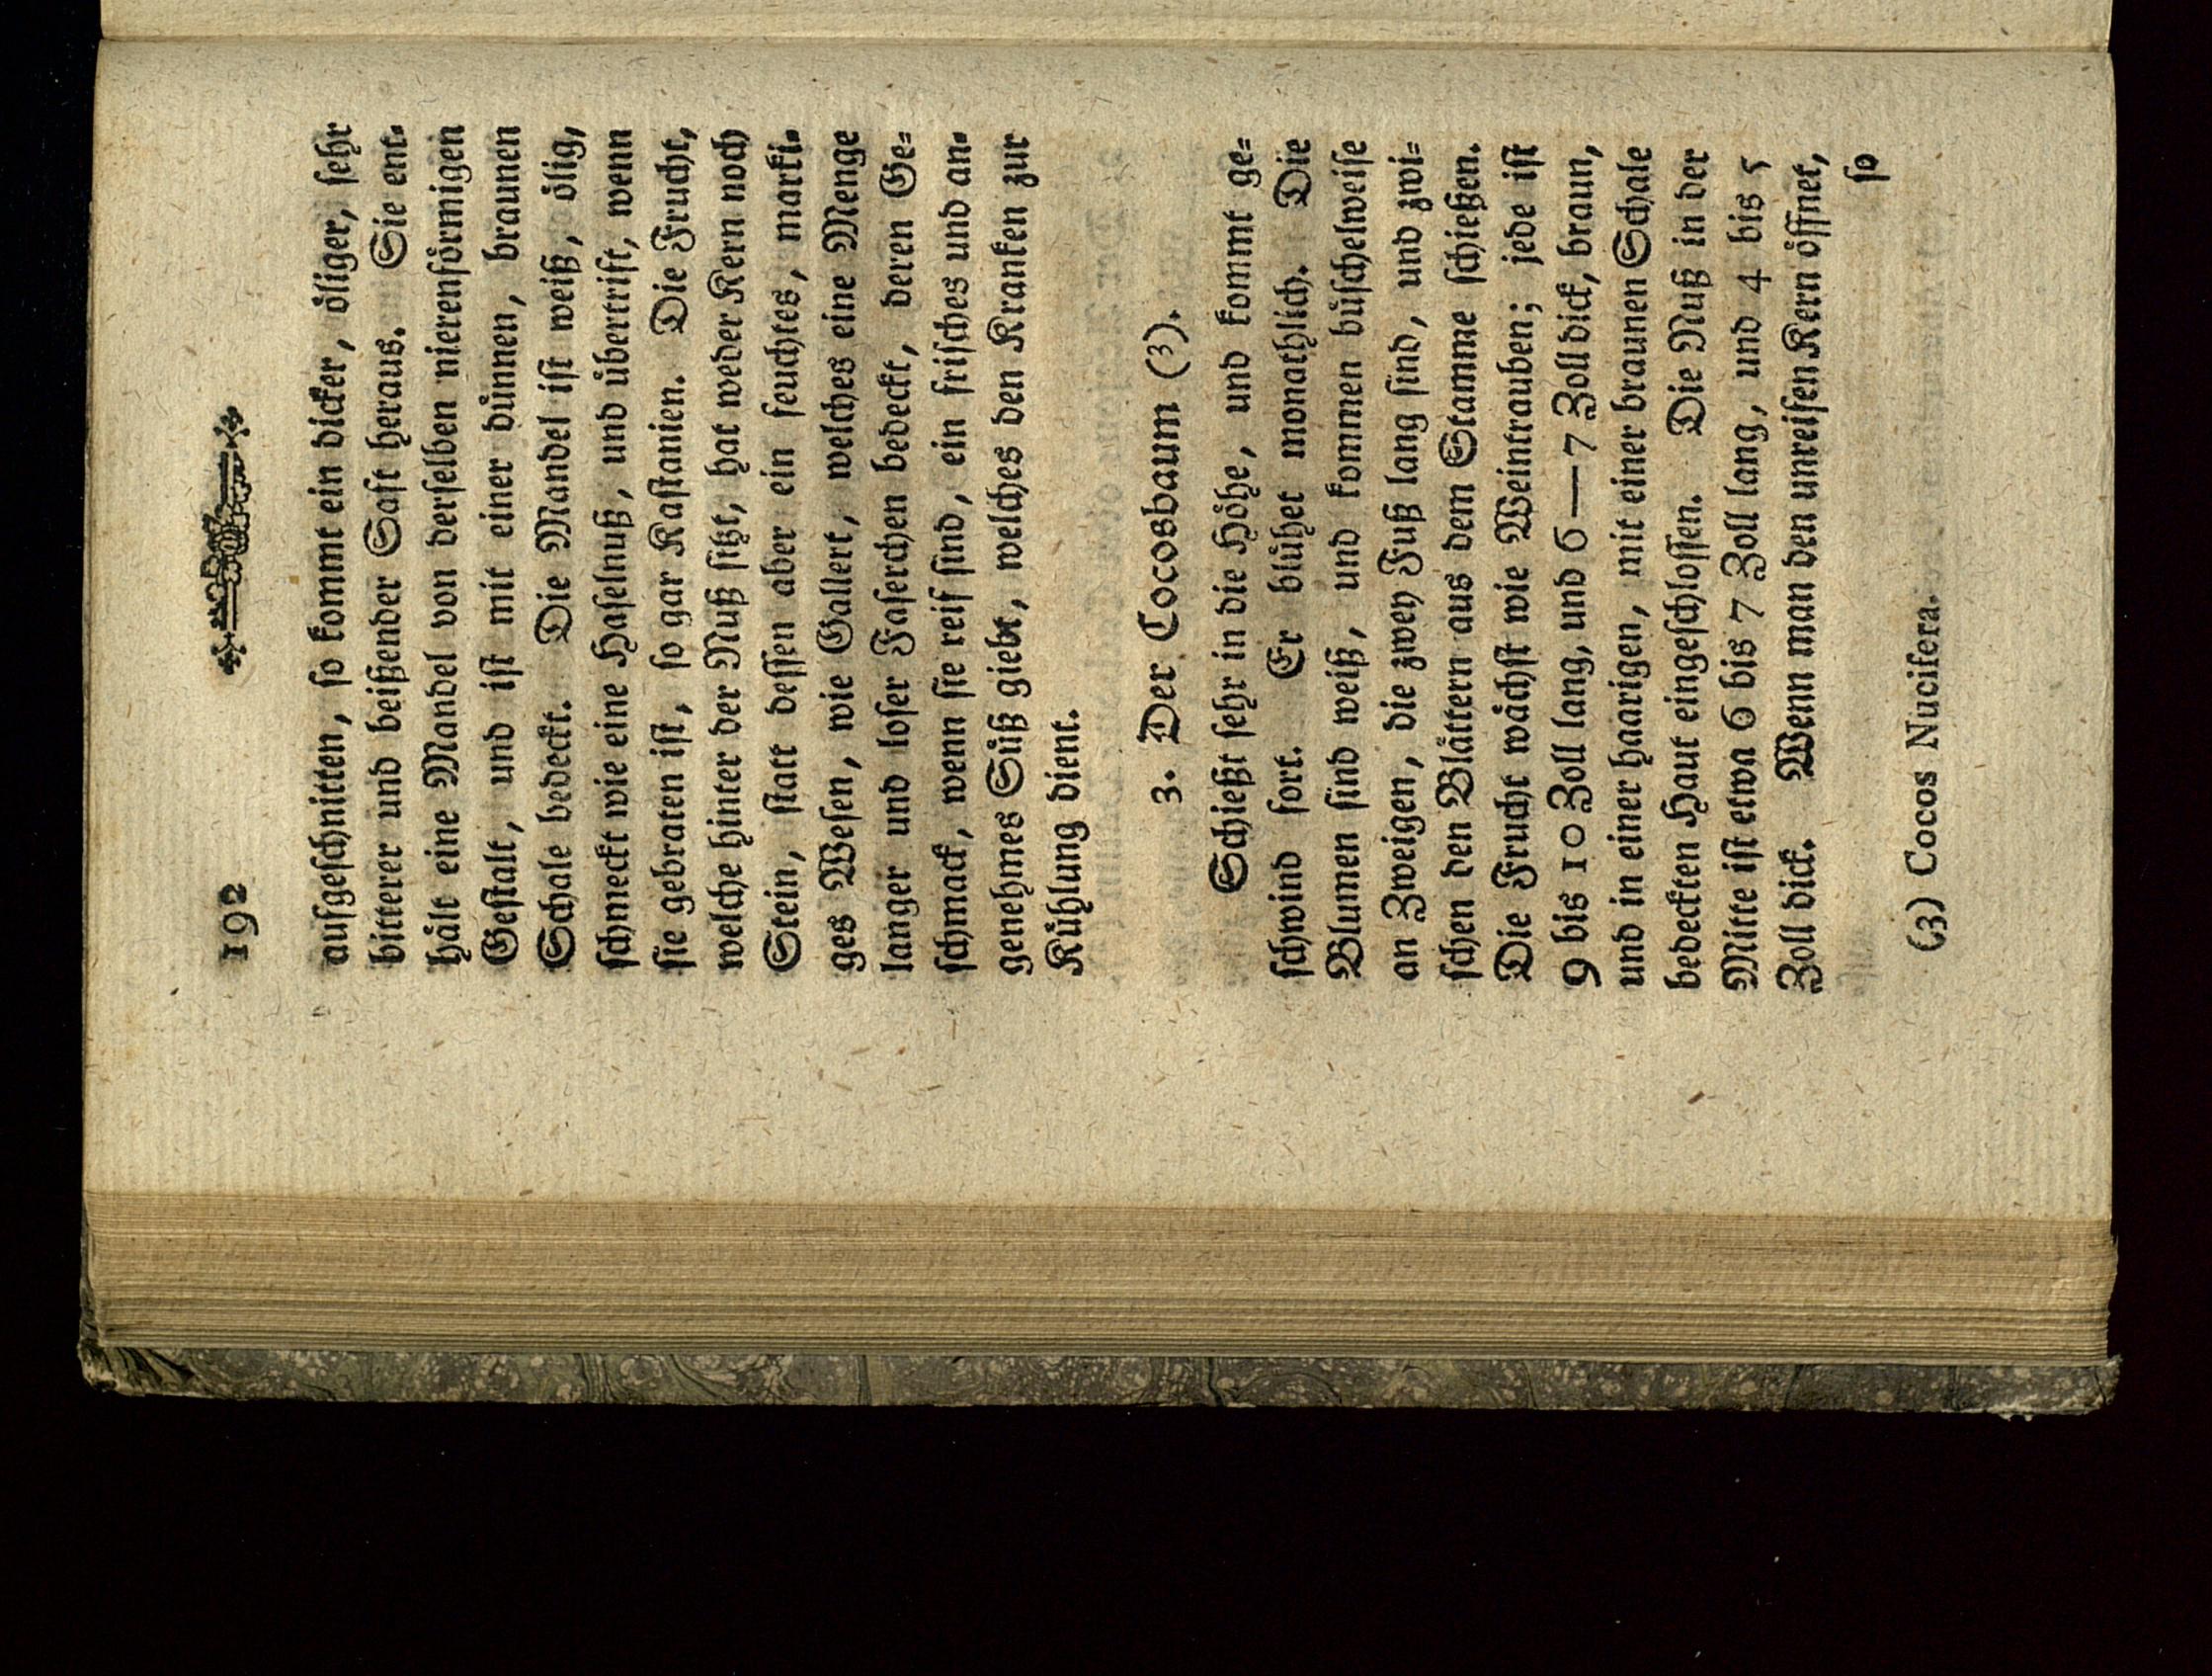 192
aufgeſchnitten, ſo kommt ein dicker, öliger, ſehr
bitterer und beißender Saft heraus. Sie ent-
hält eine Mandel von derſelben nierenförmigen
Geſtalt, und iſt mit einer dünnen, braunen
Schale bedeckt. Die Mandel iſt weiß, ölig,
ſchmeckt wie eine Haſelnuß, und übertrift, wenn
ſie gebraten iſt, ſo gar Kaſtanien. Die Frucht,
welche hinter der Nuß ſitzt, hat weder Kern noch
Stein, ſtatt deſſen aber ein feuchtes, marki-
ges Weſen, wie Gallert, welches eine Menge
langer und loſer Faſerchen bedeckt, deren Ge-
ſchmack, wenn ſie reif ſind, ein friſches und an-
genehmes Süß giebt, welches den Kranken zur
Kühlung dient.
3. Der Cocosbaum (3).
Schießt ſehr in die Höhe, und kommt ge-
ſchwind fort. Er blühet monathlich. Die
Blumen ſind weiß, und kommen büſchelweiſe
an Zweigen, die zwey Fuß lang ſind, und zwi-
ſchen den Blättern aus dem Stamme ſchießen.
Die Frucht wächſt wie Weintrauben; jede iſt
9 bis 10 Zoll lang, und 6—7 Zoll dick, braun,
und in einer haarigen, mit einer braunen Schale
bedeckten Haut eingeſchloſſen. Die Nuß in der
Mitte iſt etwa 6 bis 7 Zoll lang, und 4 bis 5
Zoll dick. Wenn man den unreifen Kern öffnet,
ſo
(3) Cocos Nucifera.